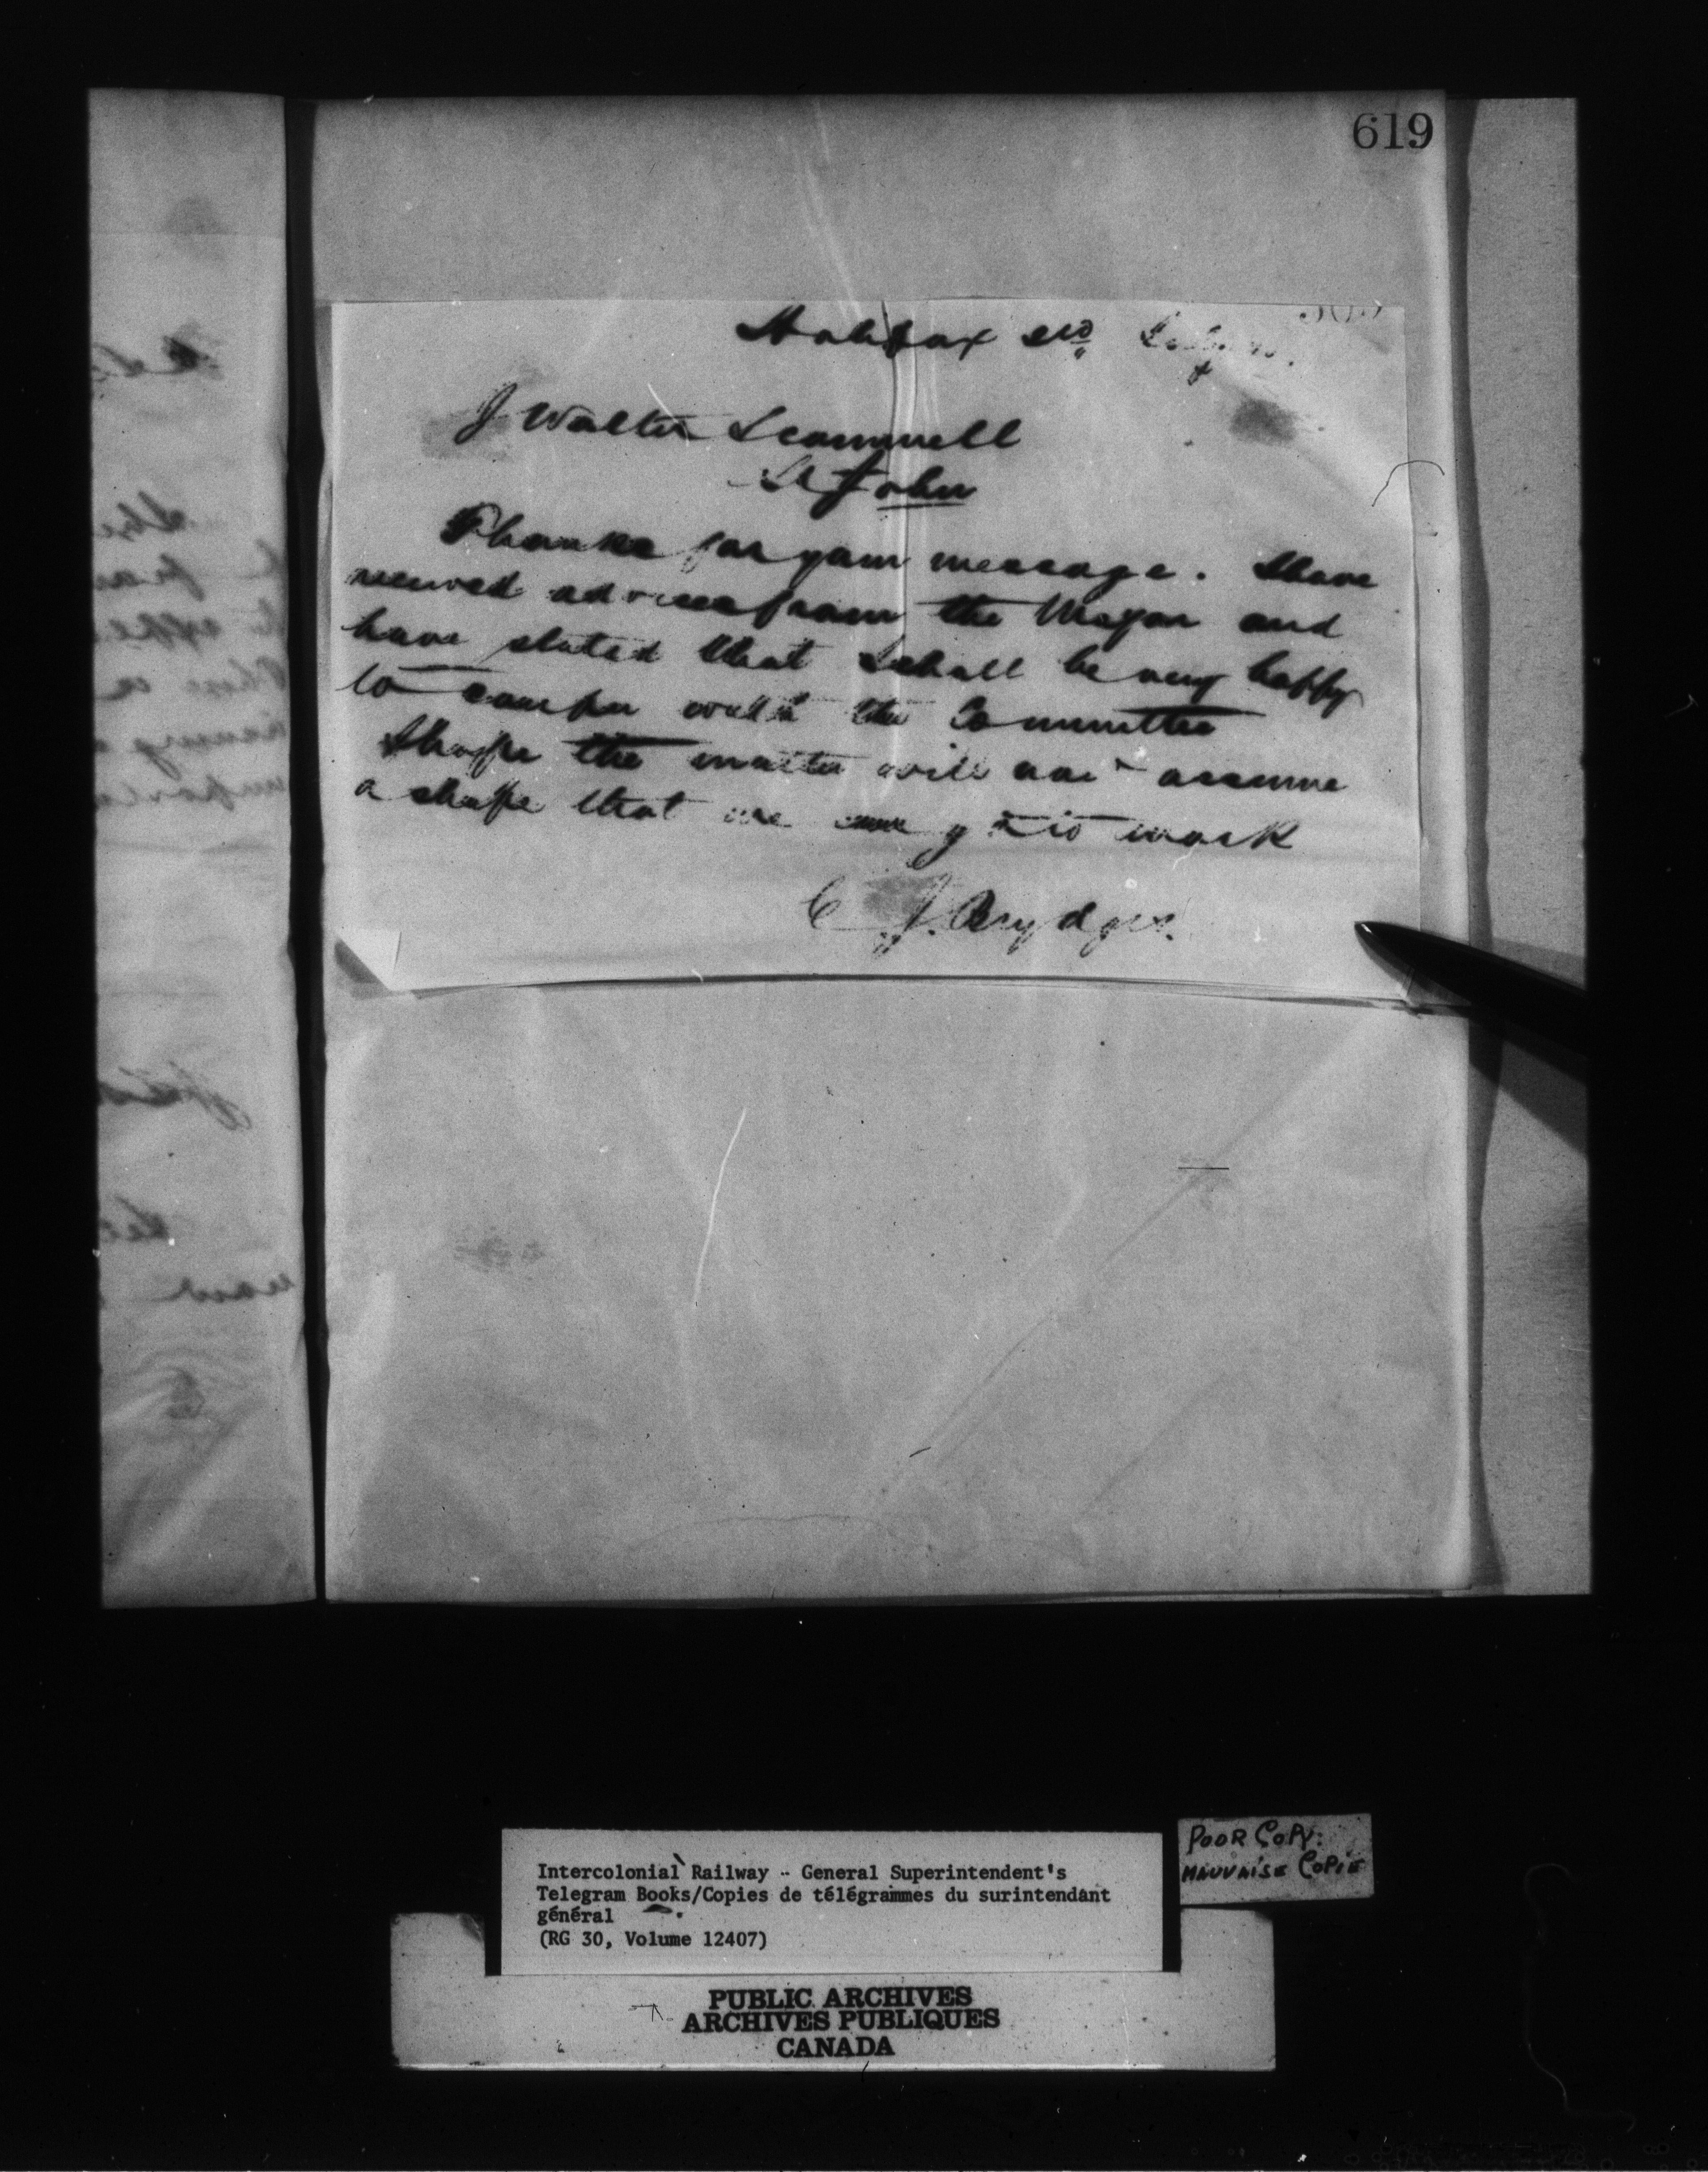 619
Halifax
J Walter Scammell
St John
Thanks for your message. I have
received advices from the Mayor and
have stated that I shall be very happy
to confer with the Committee
I hope the matter will now assume
a shape that we can go to work
C J. Brydges.
Intercolonial Railway - General Superintendent's
Telegram Books/Copies de télégrammes du surintendant
général
(RG 30, Volume 12407)
POOR COPY:
MAUVAISE COPIE
PUBLIC ARCHIVES
ARCHIVES PUBLIQUES
CANADA